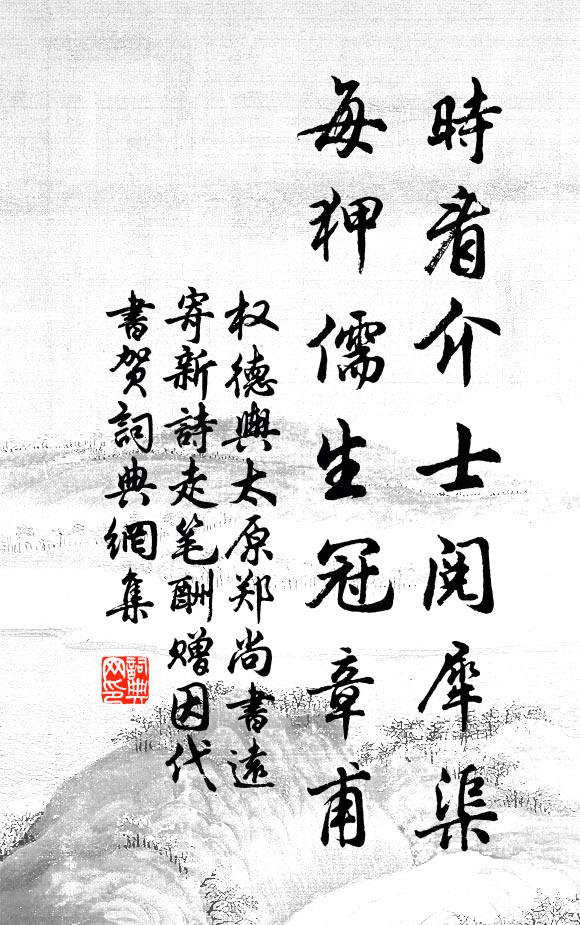 時看介士閱犀渠
每狎儒生冠章甫
权德輿太原郑尚書遠
寄新詩走笔酬赠因代
書贺詞典網集
詞典
网印